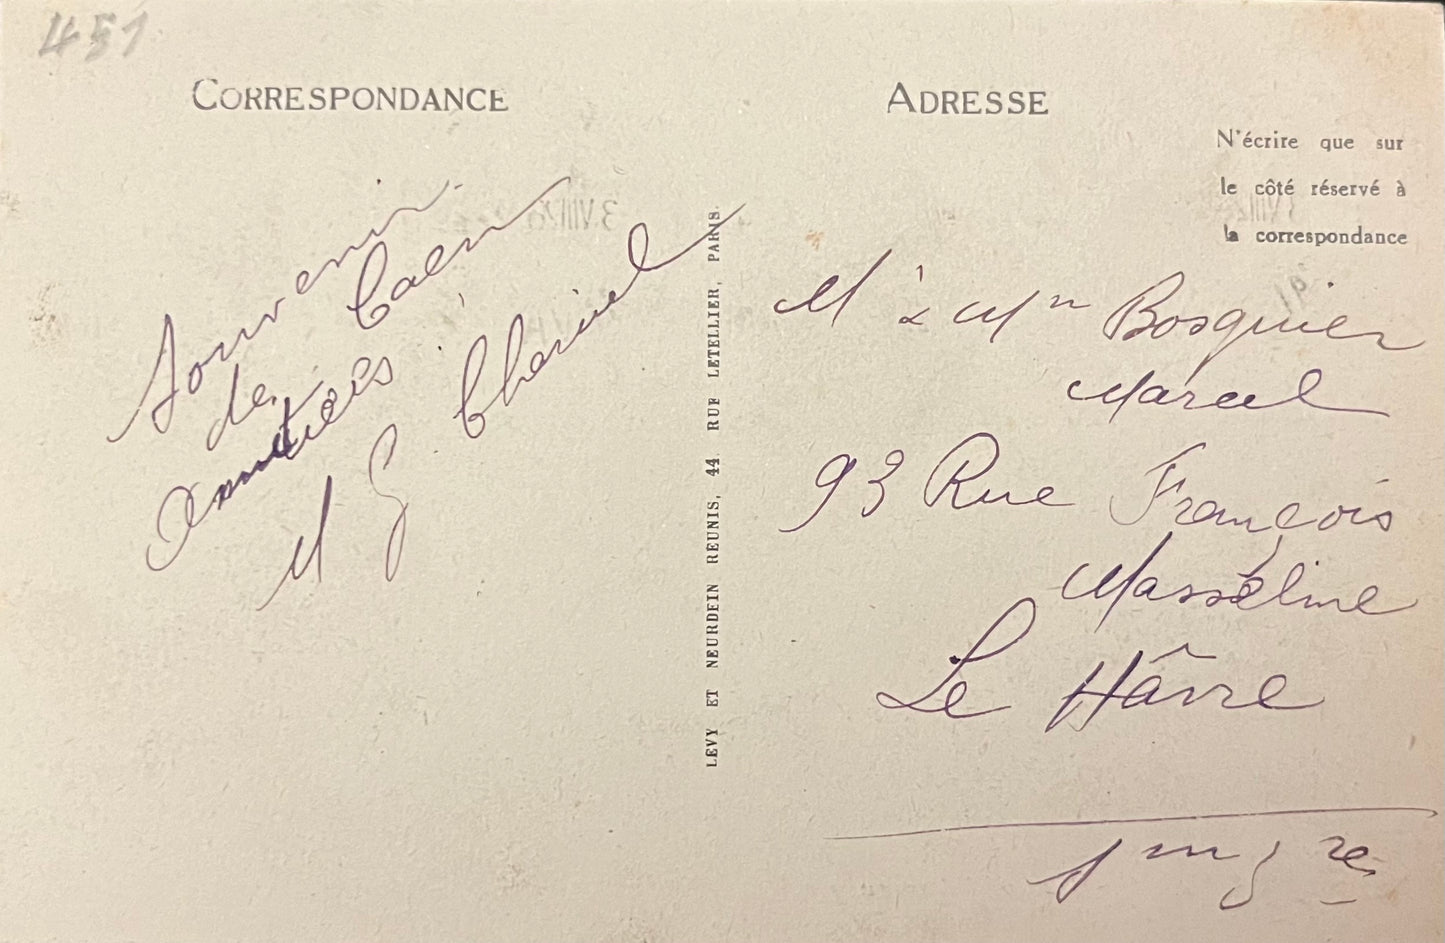 451
CORRESPONDANCE
Souvenir
de Caen
Amitiés
M G Cheruel
LEVY ET NEURDEIN REUNIS, 44 RUE LETELLIER, PARIS.
ADRESSE
N'écrire que sur
le côté réservé à
la correspondance
Mr & Mme Bosquier
Marcel
93 Rue François
Masseline
Le Hâvre
Sre